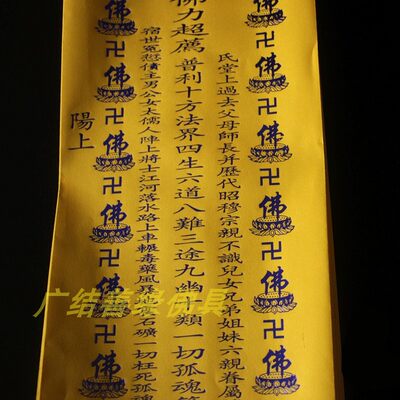 佛卍佛卍佛卍佛卍佛卍佛
氏堂上過去父母師長并歷代昭穆宗親不識兒女兄弟姐妹六親眷屬
佛力超薦 普利十方法界四生六道八難三途九幽十類一切孤魂等
宿世冤愆債主男公女太儒人陣上將士江河落水路上車輾毒藥風暴石礦一切枉死孤魂
佛卍佛卍佛卍佛卍佛卍佛
陽上
广结善缘佛具